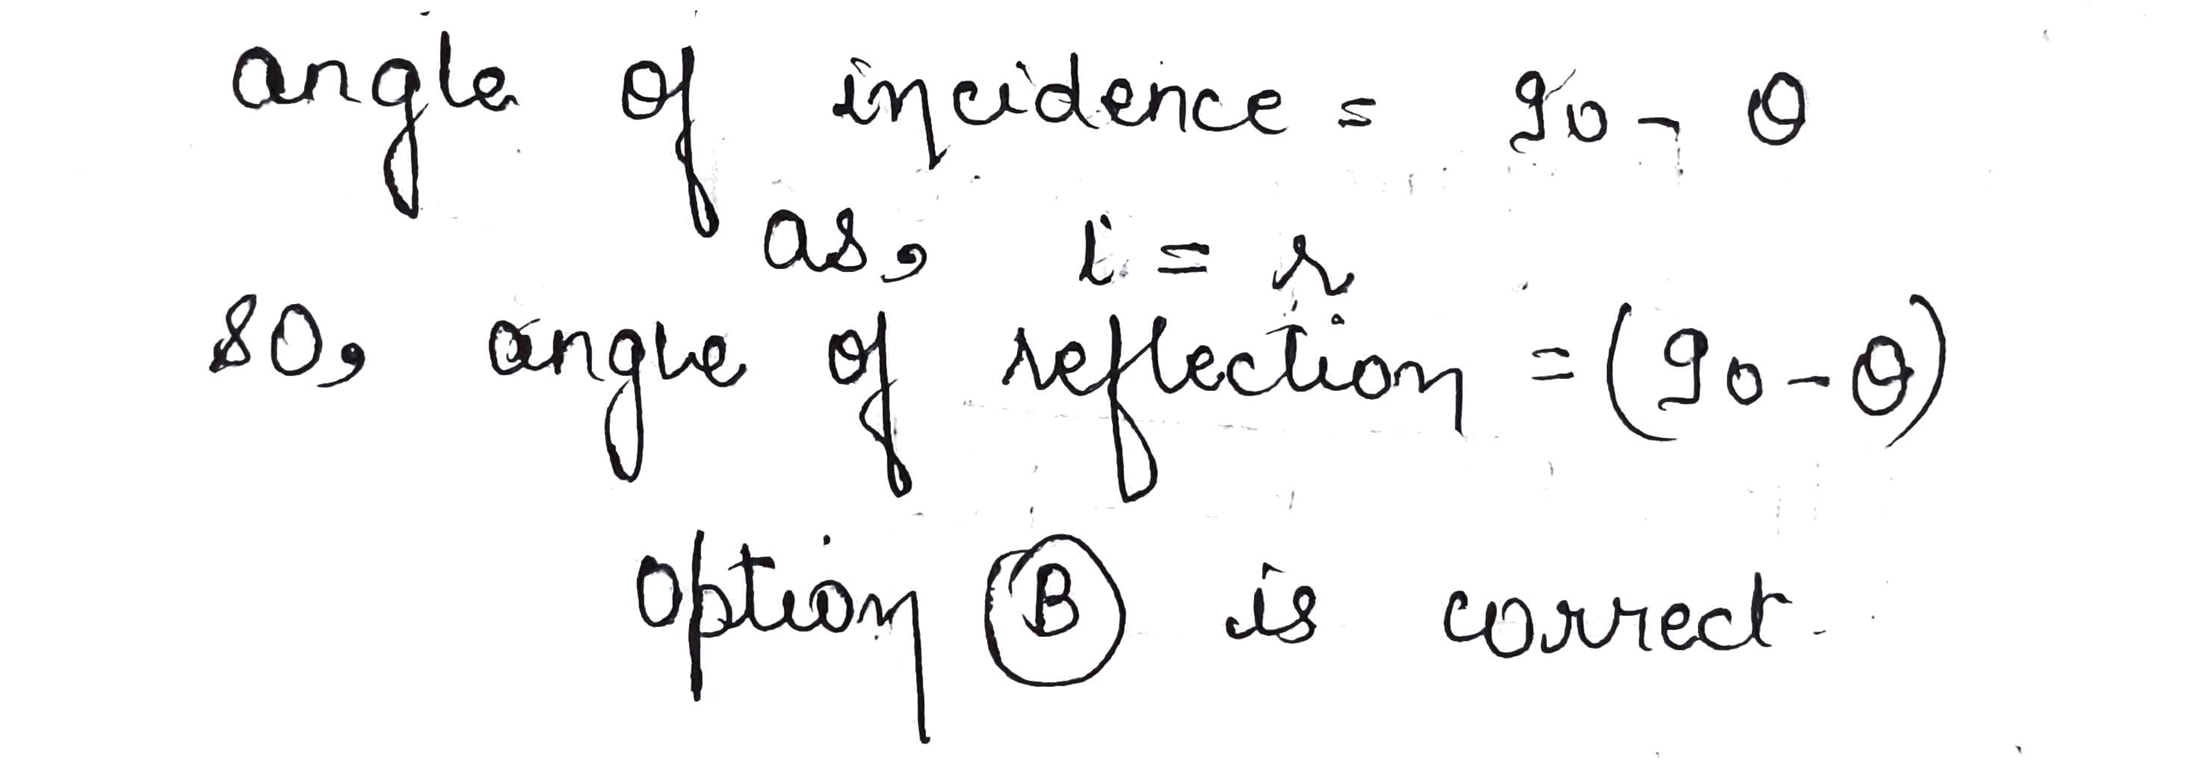 angle of incidence = 90 - θ
as, i = r
so, angle of reflection = (90 - θ)
option B is correct.